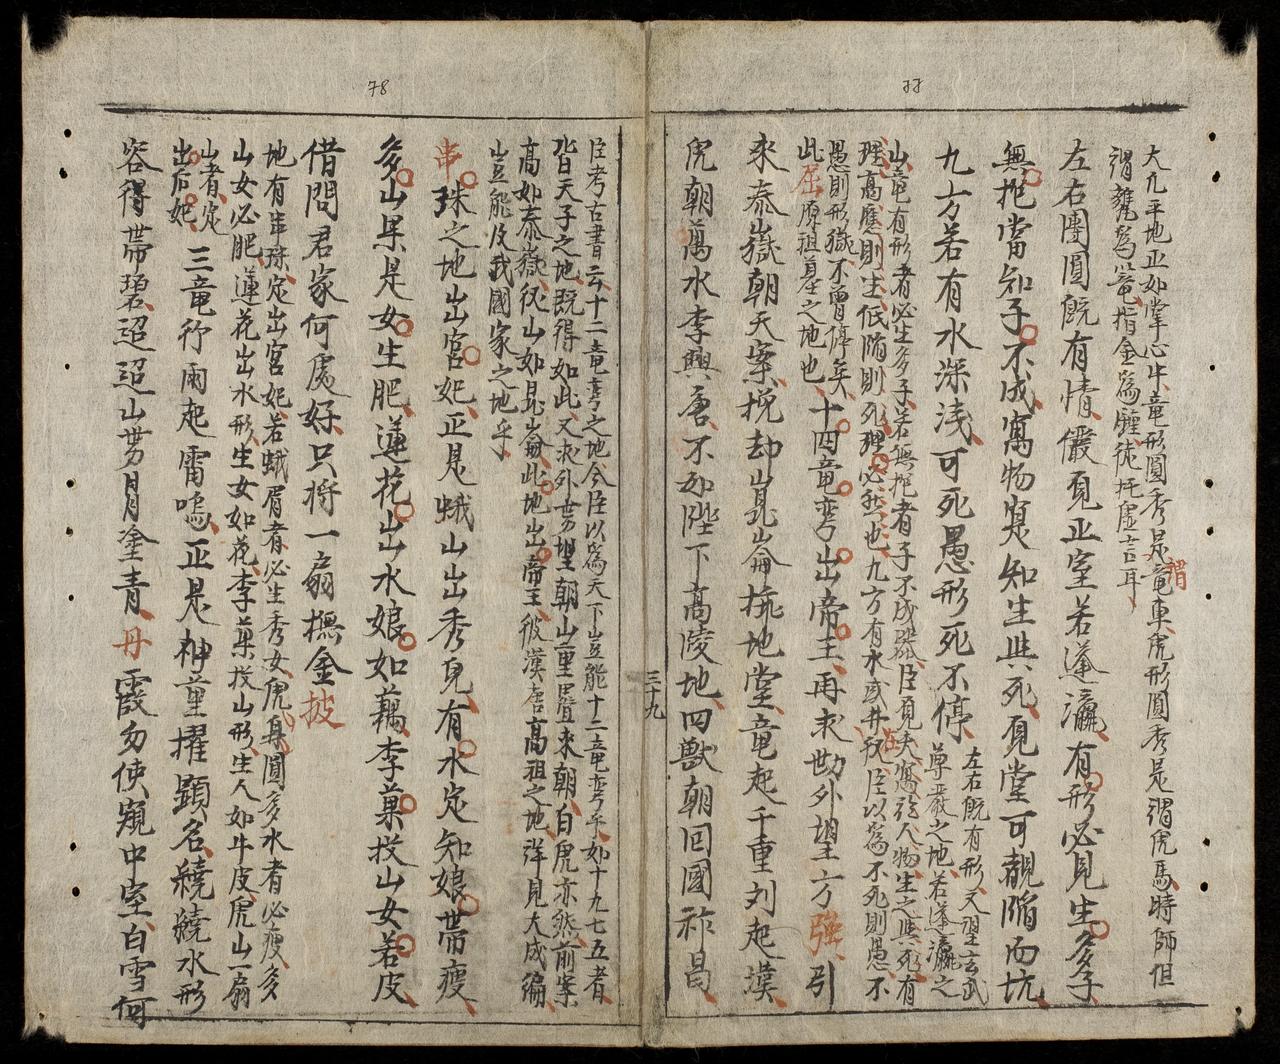 大凢平地正如掌心牛竜形圓秀是竜車虎形圓秀是謂虎馬時師但
謂
謂甕為竜指金為腄徒托虛言耳
左右團圓旣有情儼覔正室若蓬瀛有形必見生多子
無把當知子不成萬物冥知生與死覔堂可覩陥而坑
九方若有水深浅可死愚形死不停
左右旣有形又望玄武
尊嚴之地若蓬瀛之
山竜有形者必生多子若無把者子不成器臣覔夫人物生之與死有
理高應則生低陥則死理必然也九方有水或井臣以為不死則愚不
愚則形嶽不曾停矣
此屈原祖墓之地也
十四竜弯出帝王再求勘外望方強引
來泰嶽朝天案挩却崑崙地堂竜起千重刘起墣
虎朝萬水李興唐不如陛下高陵地四獸朝囘國祚昌
三十九
臣考古書云十二竜弯之地今臣以為天下豈能十二竜弯乎如十九七五者
皆天子之地旣得如此又求外势望朝山重疊來朝白虎亦然前案
高如泰嶽從山如崑崙此地出帝王彼漢唐高祖之地詳見大成編
豈能及我國家之地乎
串珠之地出宮妃正是蛾山出秀兒有水定知娘帶瘦
多山果是女生肥蓮花出水娘如藕李菓投山女若皮
借問君家何處好只将一扇撫金披
地有串珠定出宮妃若蛾眉者必生秀女虎身圓多水者必瘦多
山女必肥蓮花出水形生女如花李菓投山形生人如牛皮虎山一扇
山者定
出后妃
三竜行雨起雷鳴正是神童擢顕名繞繞水形
容得帶碧迢迢山势月塗青丹霞勿使窺中室白雪何
78
77